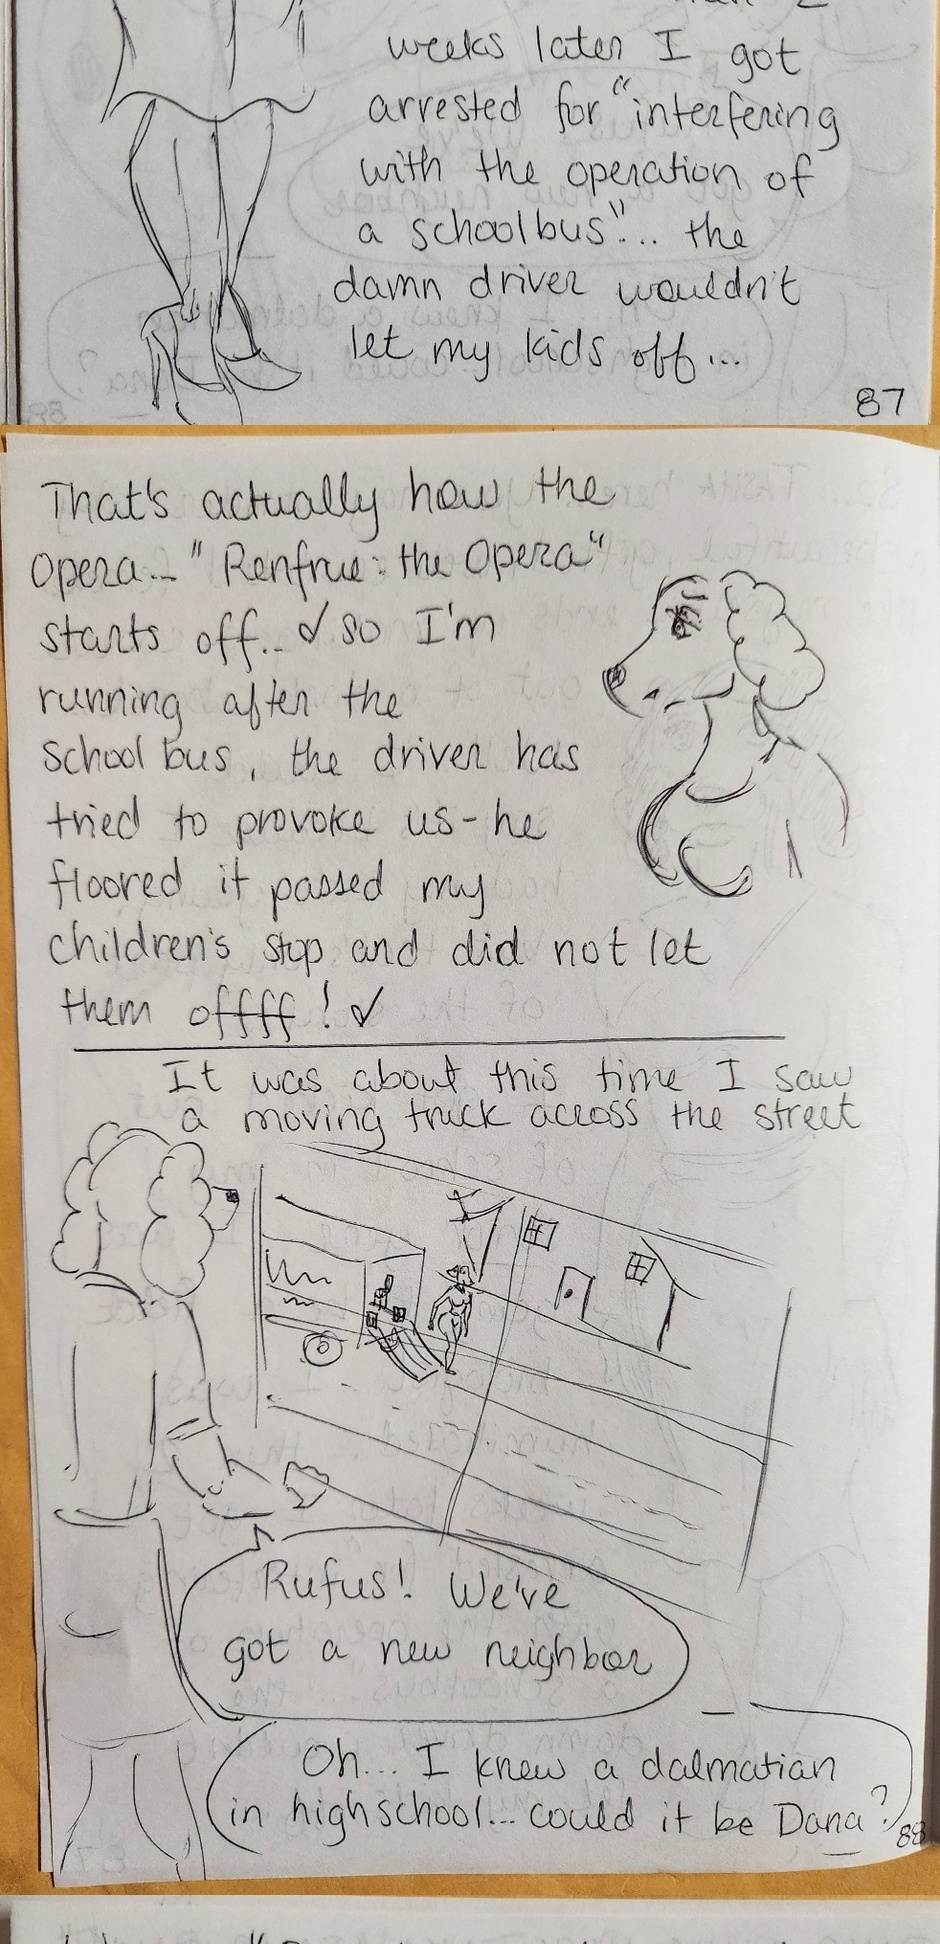 weeks later I got
arrested for "interfering
with the operation of
a schoolbus"... the
damn driver wouldn't
let my kids off...
87
That's actually how the
Opera... "Renfrue: the Opera"
starts off... ✓ so I'm
running after the
school bus, the driver has
tried to provoke us - he
floored it passed my
children's stop and did not let
them offfff! ✓
It was about this time I saw
a moving truck across the street
Rufus! We've
got a new neighbor
Oh... I knew a dalmatian
in highschool... could it be Dana?
88